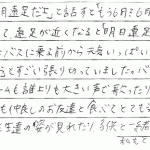 明日遠足だよ」と話すと「もう6時?6時
遠足が近くなると「明日遠足
バスに乗る前から元気いっぱい
とすごい張りきっていました。バ
ームも誰よりも大きい声で歌ったり
も仲良しのお友達と食べてとても
生達の姿が見れたり子供と一緒
私もと